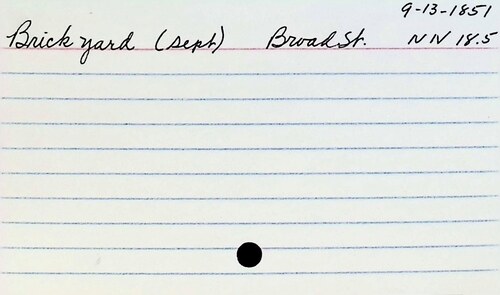 9-13-1851
Brick yard (Sept) Broad St. NN 18.5